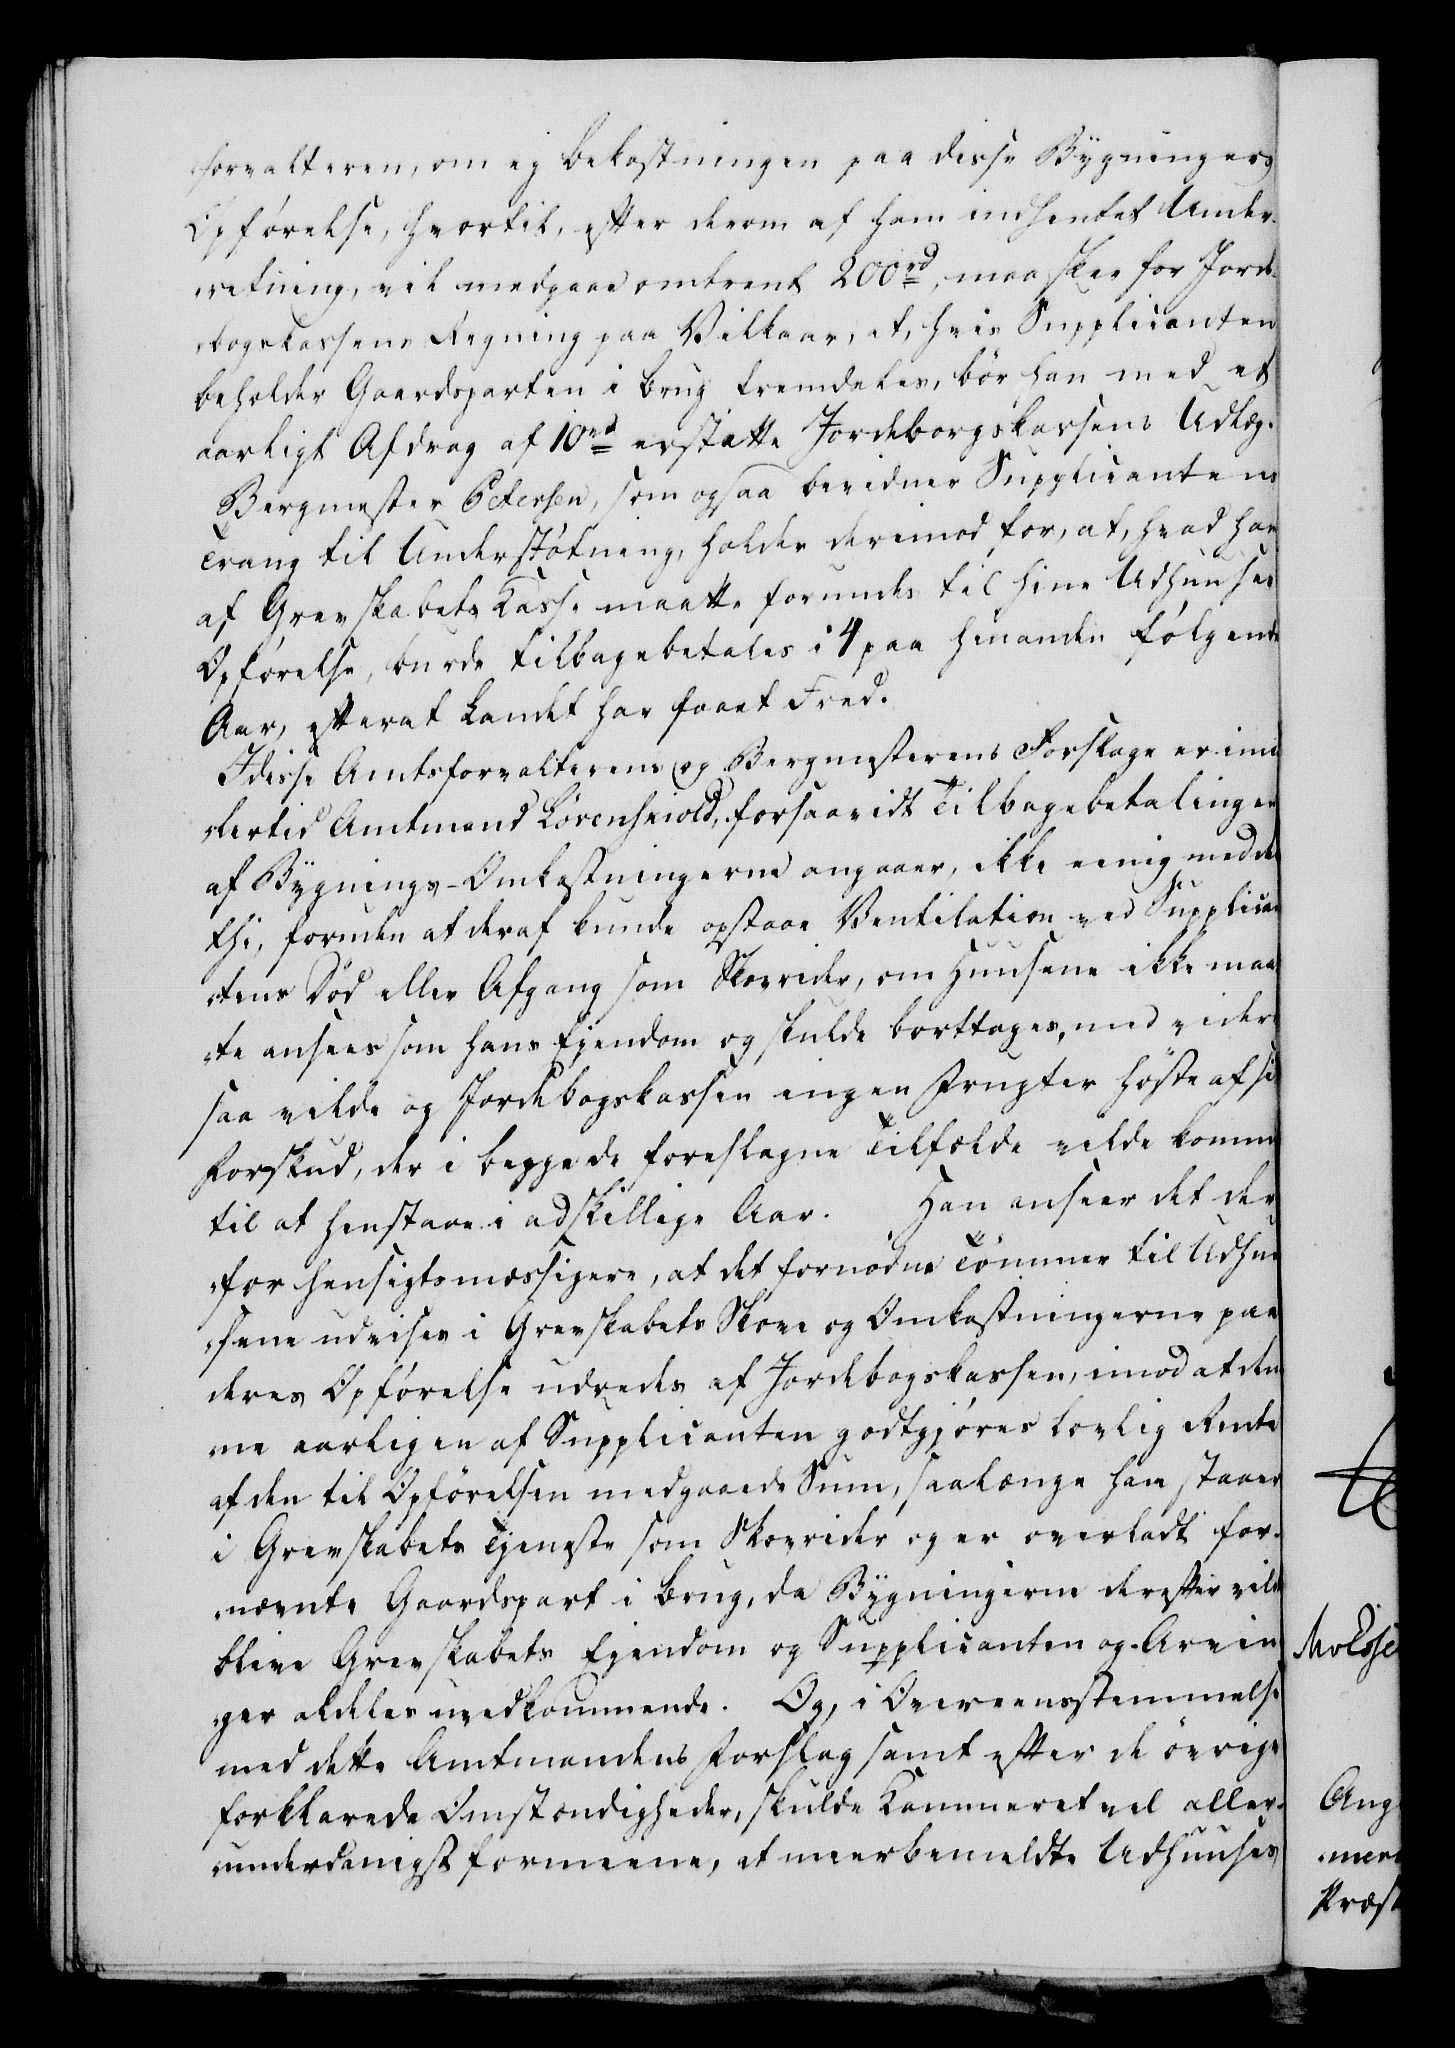 forvalteren, om ej bekostningen paa disse Bygningers
Opførelse, hvortil, efter derom af ham indhentet Under-
retning, vil medgaae omtrent 200 rd, maa skee for Jorde-
bogskassens Regning paa Vilkaar, at, hvis Supplicanten
beholder Gaardsparten i brug fremdeles, bør han med et
aarligt Afdrag af 10 rd erstatte Jordeborgskassens Udlæg.
Bergmester Petersen, som ogsaa bevidner Supplicantens
Trang til Understøtning, holder derimod for, at, hvad ham
af Grevskabets Casse maatte forundes til hine Udhuuses
Opførelse, burde tilbagebetales i 4 paa hinanden følgende
Aar, efterat Landet har faaet Fred.
I disse Amtsforvalterens og Bergmesterens Forslage er imid
lertid Amtmand Løvenskiold, forsaavidt Tilbagebetalingen
af Bygnings-Omkostningerne angaaer, ikke eenig med dem
thi, foruden at deraf kunde opstaae Ventilation ved Supplican
tens Død eller Afgang som Skovrider, om Huusene ikke maat
te ansees som hans Ejendom og skulde borttages, med videre
saa vilde og Jordebogskassen ingen Frugter høste af sit
Forskud, der i begge de foreslagne Tilfælde vilde komme
til at henstaae i adskillige Aar. Han anseer det der
for hensigtsmæssigere, at det fornødne Tømmer til Udhuu
sene udvises i Grevskabets Skove og Omkostningerne paa
deres Opførelse udredes af Jordebogskassen, imod at den
ne aarligen af Supplicanten godtgjøres lovlig Rente
af den til Opførelsen medgaaede Sum, saalænge han staaer
i Grevskabets Tjeneste som Skovrider og er overladt for-
nævnte Gaardspart i brug, da Bygningerne derefter vilde
blive Grevskabets Ejendom og Supplicanten og Arvin
ger aldeles uvedkommende. Og, i Overeensstemmelse
med dette Amtmandens Forslag samt efter de øvrige
forklarede Omstændigheder, skulde Kammeret vel aller-
underdanigst formeene, at meerbemeldte Udhuuses